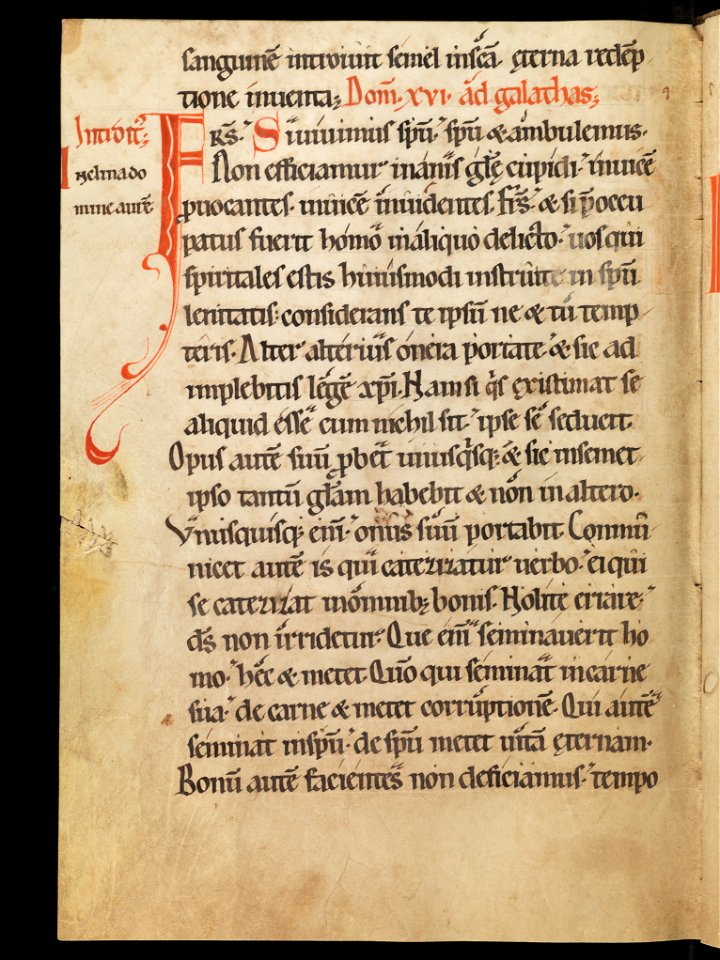 sanguinē introiuit semel insc̄ā. ęterna redēp
tione inuenta; Dom̄. xvi. ad galathas;
Introit⁹;
FRS̄. Si uiuimus sp̄u. sp̄u & ambulemus.
Inclina do
Non efficiamur inanis glē cupidi. inuicē
mine aurē
p̱uocantes. inuicē inuidentes. fr̄s. & si p̄occu
patus fuerit homo in aliquo delicto. uos qui
spiritales estis huiusmodi instruite in sp̄u
lenitatis. considerans te ipsū ne & tu temp
teris. Alter alterius onera portate. & sic ad
implebitis legē xp̄i. Nam si q̄s existimat se
aliquid esse cum nichil sit. ipse se seducit.
Opus autē suū p̱bet unusq̄sq; & sic in semet
ipso tantū gl̄am habebit & non in altero.
Vnusquisq; eni̅. onus suū portabit. Commu
nicet autē is qui catezizatur uerbo. ei qui
se catezizat in omnib; bonis. Nolite errare.
d̄s non irridetur. Que eni̅ seminauerit ho
mo. hęc & metet. Qūo qui seminat in carne
sua. de carne & metet corruptionē. Qui autē
seminat in sp̄u. de sp̄u metet uitā ęternam.
Bonū autē facientes non deficiamus. tempo